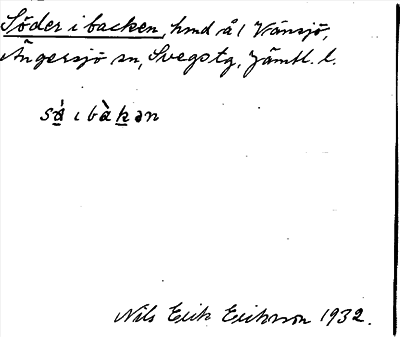 Söder i backen, hmd å 1 Vänsjö,
Ängersjö sn, Svegs tg, Jämtl. l.
sǻ ı bàkən
Nils Erik Eriksson 1932.